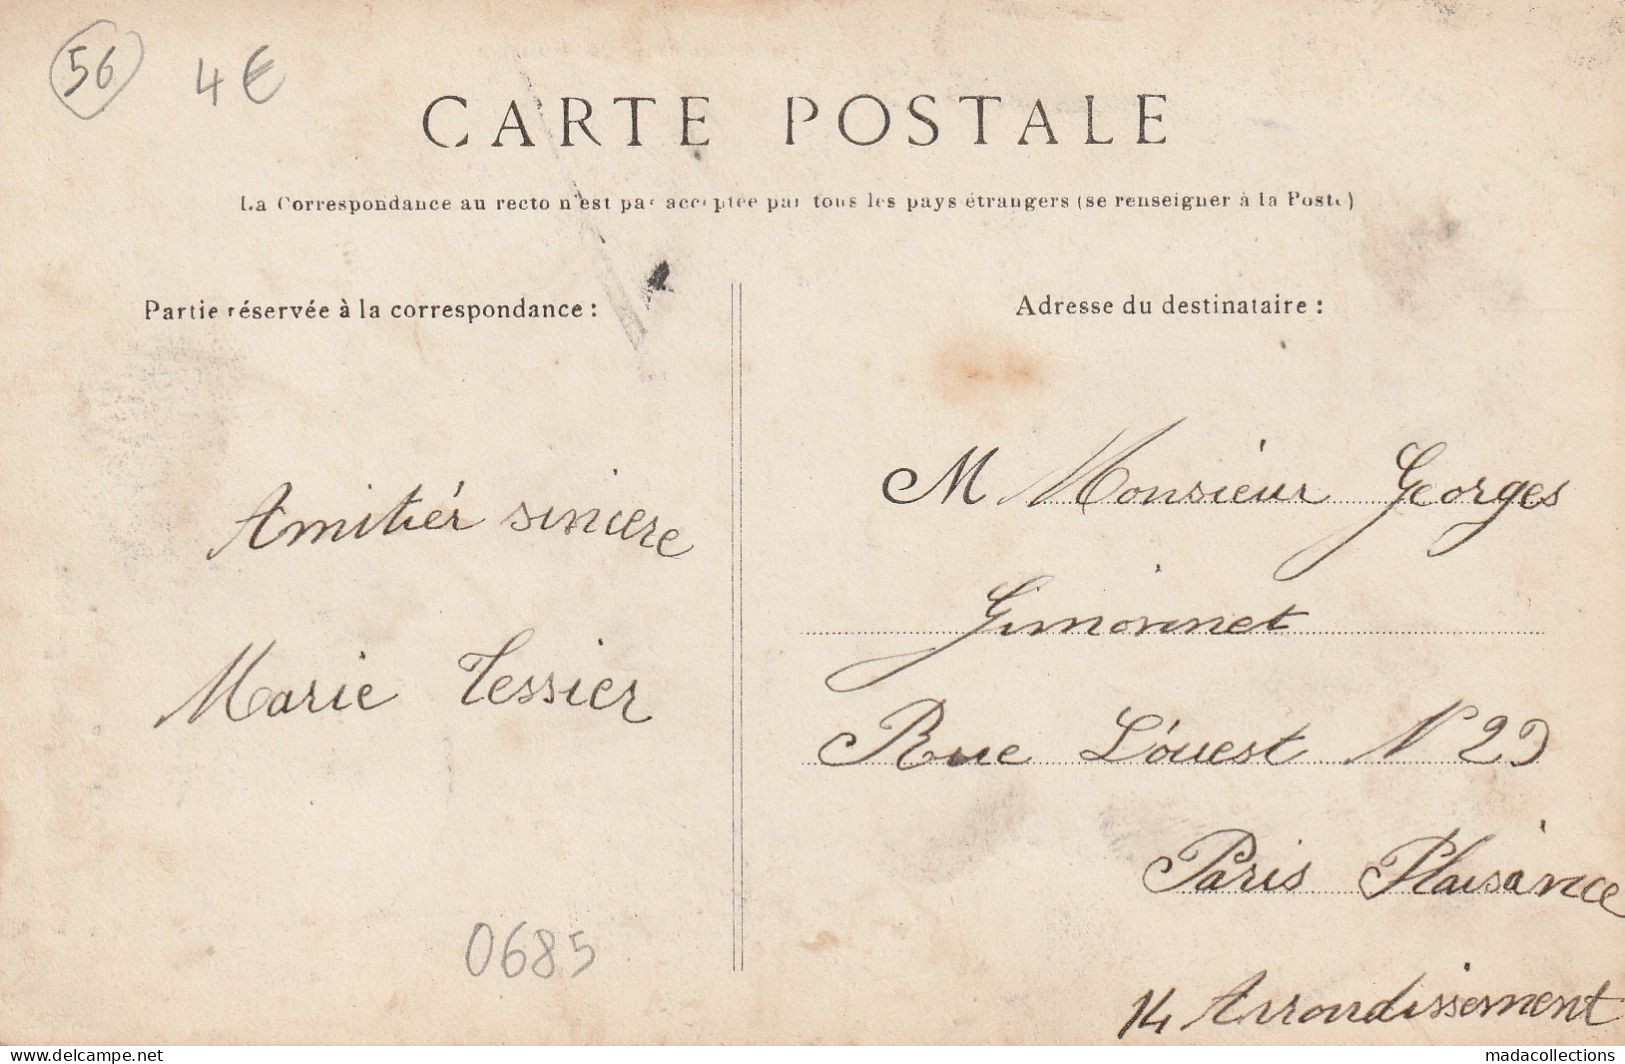 56 4€
CARTE POSTALE
La Correspondance au recto n'est pas acceptée par tous les pays étrangers (se renseigner à la Poste)
Partie réservée à la correspondance :
Amitiér sincere
Marie Tessier
0685
Adresse du destinataire :
M Monsieur Georges
Gimonnet
Rue L'ouest N 29
Paris Plaisance
14 Arrondissement
www.delcampe.net
madacollections